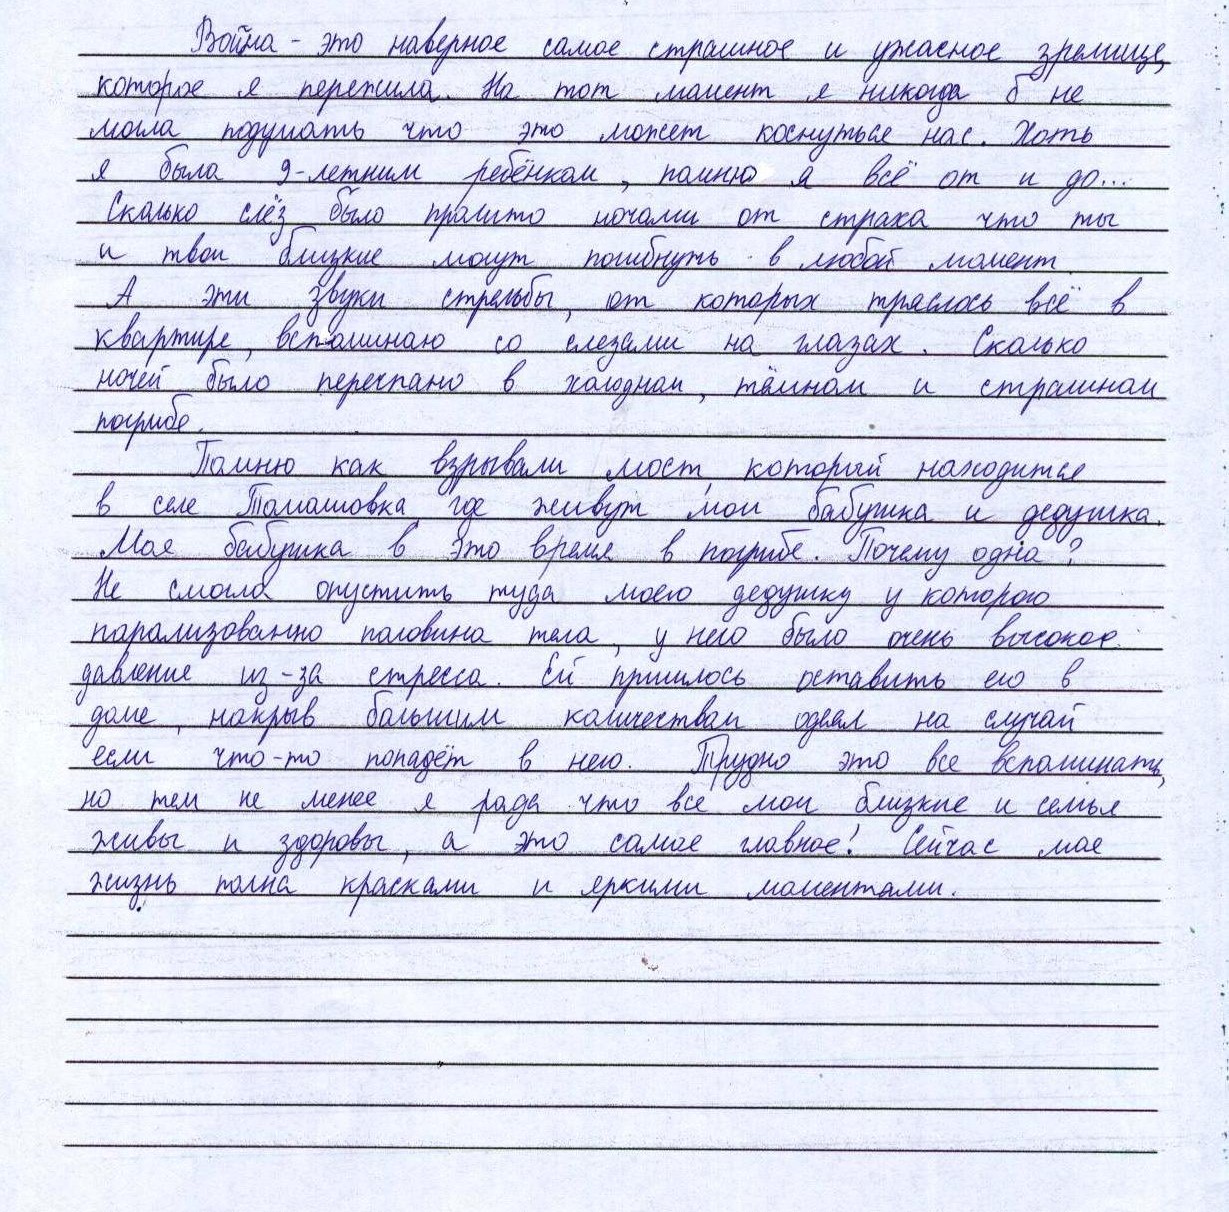 Война - это наверное самое страшное и ужасное зрелище,
которое я пережила. На тот момент я никогда б не
могла подумать что это может коснуться нас. Хоть
я была 9-летним ребёнком, помню я всё от и до...
Сколько слёз было пролито ночами от страха что ты
и твои близкие могут погибнуть в любой момент.
А эти звуки стрельбы, от которых тряслось всё в
квартире, вспоминаю со слезами на глазах. Сколько
ночей было переспано в холодном, тёмном и страшном
погрибе.
Помню как взрывали мост, который находится
в селе Томашовка, где живут мои бабушка и дедушка.
Моя бабушка в это время в погрибе. Почему одна?
Не смогла опустить туда моего дедушку у которого
парализованно половина тела, у него было очень высокое
давление из-за стресса. Ей пришлось оставить его в
доме, накрыв большим количеством одеял на случай
если что-то попадёт в него. Трудно это все вспоминать,
но тем не менее я рада что все мои близкие и семья
живы и здоровы, а это самое главное! Сейчас моя
жизнь полна красками и яркими моментами.